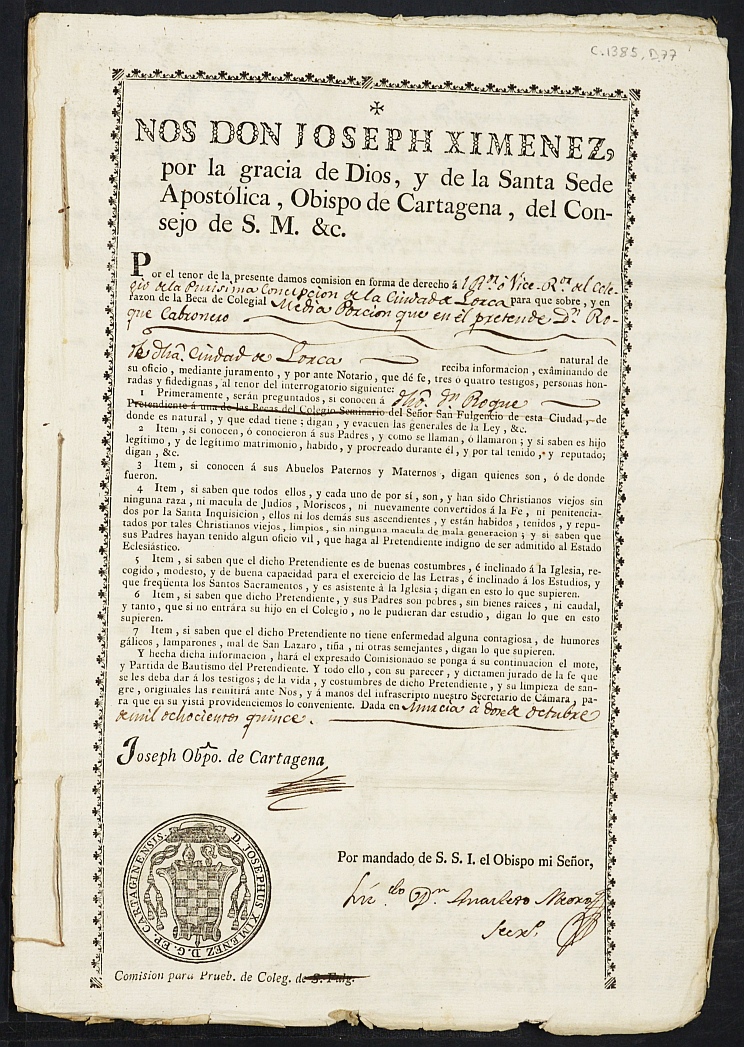 C.1385, D.77
NOS DON JOSEPH XIMENEZ,
por la gracia de Dios, y de la Santa Sede
Apostólica, Obispo de Cartagena, del Con-
sejo de S. M. &c.
Por el tenor de la presente damos comision en forma de derecho á l Rr. ó Vice-Ror. del Cole-
gio de la Purisima Concepcion de la Ciudad de Lorca para que sobre, y en
razon de la Beca de Colegial Media Porcion que en él pretende Dn. Ro-
que Cabronero
de dha. Ciudad de Lorca natural de
reciba informacion, exâminando de
su oficio, mediante juramento, y por ante Notario, que dé fe, tres o quatro testigos, personas hon-
radas y fidedignas, al tenor del interrogatorio siguiente:
1 Primeramente, serán preguntados, si conocen á dho. Dn. Roque
Pretendiente á una de las Becas del Colegio Seminario del Señor San Fulgencio de esta Ciudad, de
donde es natural, y que edad tiene; digan, y evacuen las generales de la Ley, &c.
2 Item, si conocen, ó conocieron á sus Padres, y como se llaman, ó llamaron; y si saben es hijo
legítimo, y de legítimo matrimonio, habido, y procreado durante él, y por tal tenido, y reputado;
digan, &c.
3 Item, si conocen á sus Abuelos Paternos y Maternos, digan quienes son, ó de donde
fueron.
4 Item, si saben que todos ellos, y cada uno de por sí, son, y han sido Christianos viejos sin
ninguna raza, ni macula de Judios, Moriscos, ni nuevamente convertidos á la Fe, ni penitencia-
dos por la Santa Inquisicion, ellos ni los demás sus ascendientes, y están habidos, tenidos, y repu-
tados por tales Christianos viejos, limpios, sin ninguna macula de mala generacion; y si saben que
sus Padres hayan tenido algun oficio vil, que haga al Pretendiente indigno de ser admitido al Estado
Eclesiástico.
5 Item, si saben que el dicho Pretendiente es de buenas costumbres, é inclinado á la Iglesia, re-
cogido, modesto, y de buena capacidad para el exercicio de las Letras, é inclinado á los Estudios, y
que freqüenta los Santos Sacramentos, y es asistente á la Iglesia; digan en esto lo que supieren.
6 Item, si saben que dicho Pretendiente, y sus Padres son pobres, sin bienes raices, ni caudal,
y tanto, que si no entrára su hijo en el Colegio, no le pudieran dar estudio, digan lo que en esto
supieren.
7 Item, si saben que el dicho Pretendiente no tiene enfermedad alguna contagiosa, de humores
gálicos, lamparones, mal de San Lazaro, tiña, ni otras semejantes, digan lo que supieren.
Y hecha dicha informacion, hará el expresado Comisionado se ponga á su continuacion el mote,
y Partida de Bautismo del Pretendiente. Y todo ello, con su parecer, y dictamen jurado de la fe que
se les deba dar á los testigos; de la vida, y costumbres de dicho Pretendiente, y su limpieza de san-
gre, originales las remitirá ante Nos, y á manos del infrascripto nuestro Secretario de Cámara, pa-
ra que en su vista providenciemos lo conveniente. Dada en Murcia á doze de Octubre
de mil ochocientos quince.
Joseph Obpo. de Cartagena
D. JOSEPHUS XIMENEZ D.G. EP. CARTAGINENSIS.
Por mandado de S. S. I. el Obispo mi Señor,
Lic.do Dn.
Secro.
Comision para Prueb. de Coleg. de S. Fulg.